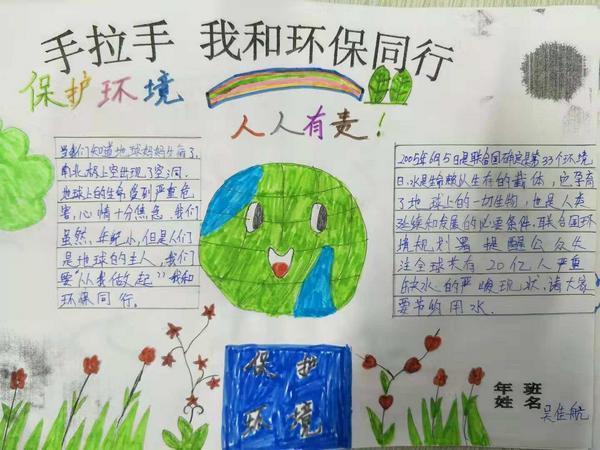 手拉手 我和环保同行
保护环境
人人有责！
当我们知道地球妈妈生病了，
南北极上空出现了空洞，
地球上的生命受到严重危
害，心情十分焦急，我们
虽然，年纪小，但是人们
是地球的主人，我们
要“从我做起”我和
环保同行。
2005年6月5日是联合国确定是第33个环境
日，水是生命赖以生存的载体，它孕育
了地球上的一切生物，也是人类
延续和发展的必要条件，联合国环
境规划署提醒公众关
注全球共有20亿人严重
缺水的严峻现状，请大家
要节约用水。
保护
环境
年 班
姓名
吴佳航